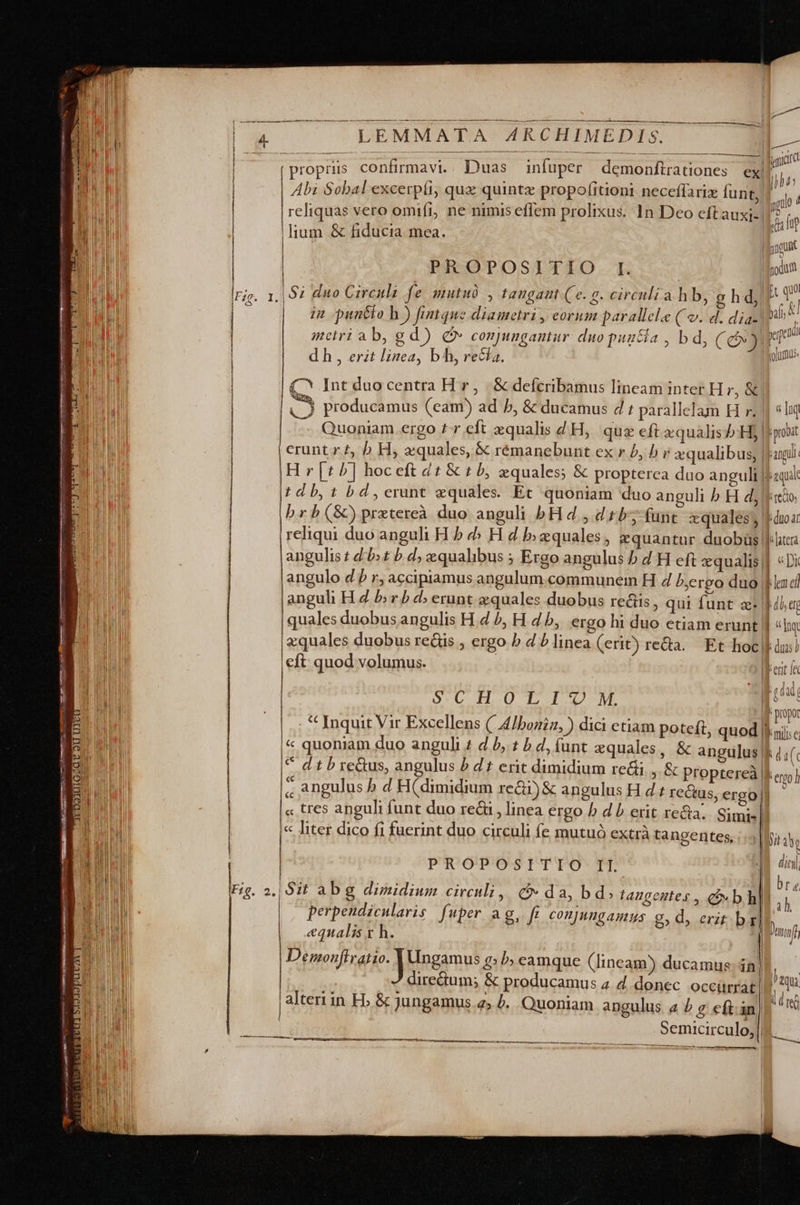 4 LEMMATA ARCHIMEDIS.
propriis confirmavi. Duas infuper demonftrationes ex
Abi Sohal excerpfi, quæ quintæ propofitioni neceffariæ funt,
reliquas vero omifi, ne nimis effem prolixus. In Deo eft auxi-
lium & fiducia mea.
PROPOSITIO I.
Fig. 1. Si duo Circuli fe mutuò, tangant (e. g. circuli a h b, g h d,
in puncto h) fintque diametri, eorum parallelæ (v. d. dia-
metri a b, g d) & conjungantur duo puncta, b d, (&)
d h, erit linea, b h, recta.
SInt duo centra H r, & defcribamus lineam inter H r, &
producamus (eam) ad b, & ducamus d t parallelam H r.
Quoniam ergo t r eft æqualis d H, quæ eft æqualis b H,
erunt r t, b H, æquales, & remanebunt ex r b, b r æqualibus,
H r [t b] hoc eft d t & t b, æquales; & propterea duo anguli
t d b, t b d, erunt æquales. Et quoniam duo anguli b H d,
b r b (&) prætereà duo anguli b H d, d t b, funt æquales,
reliqui duo anguli H b d, H d b, æquales, æquantur duobus
angulis t d b, t b d, æqualibus; Ergo angulus b d H eft æqualis
angulo d b r, accipiamus angulum communem H d b, ergo duo
anguli H d b, r b d, erunt æquales duobus rectis, qui funt æ-
quales duobus angulis H d b, H d b, ergo hi duo etiam erunt
æquales duobus rectis, ergo b d b linea (erit) recta. Et hoc
eft quod volumus.
SCHOLIUM.
“ Inquit Vir Excellens (Alboniz,) dici etiam poteft, quod
“ quoniam duo anguli t d b, t b d, funt æquales, & angulus
“ d t b rectus, angulus b d t erit dimidium recti, & proptereà
“ angulus b d H (dimidium recti) & angulus H d t rectus, ergo
“ tres anguli funt duo recti, linea ergo b d b erit recta. Simi-
“ liter dico fi fuerint duo circuli fe mutuò extrà tangentes.
PROPOSITIO II.
Fig. 2. Sit a b g dimidium circuli, & d a, b d, tangentes, & b h
perpendicularis fuper a g, fi conjungamus g, d, erit b r
æqualis r h.
Demonftratio. JUngamus g, b, eamque (lineam) ducamus in
directum; & producamus a d donec occurrat
alteri in H, & jungamus a, b. Quoniam angulus a b g eft in
Semicirculo,